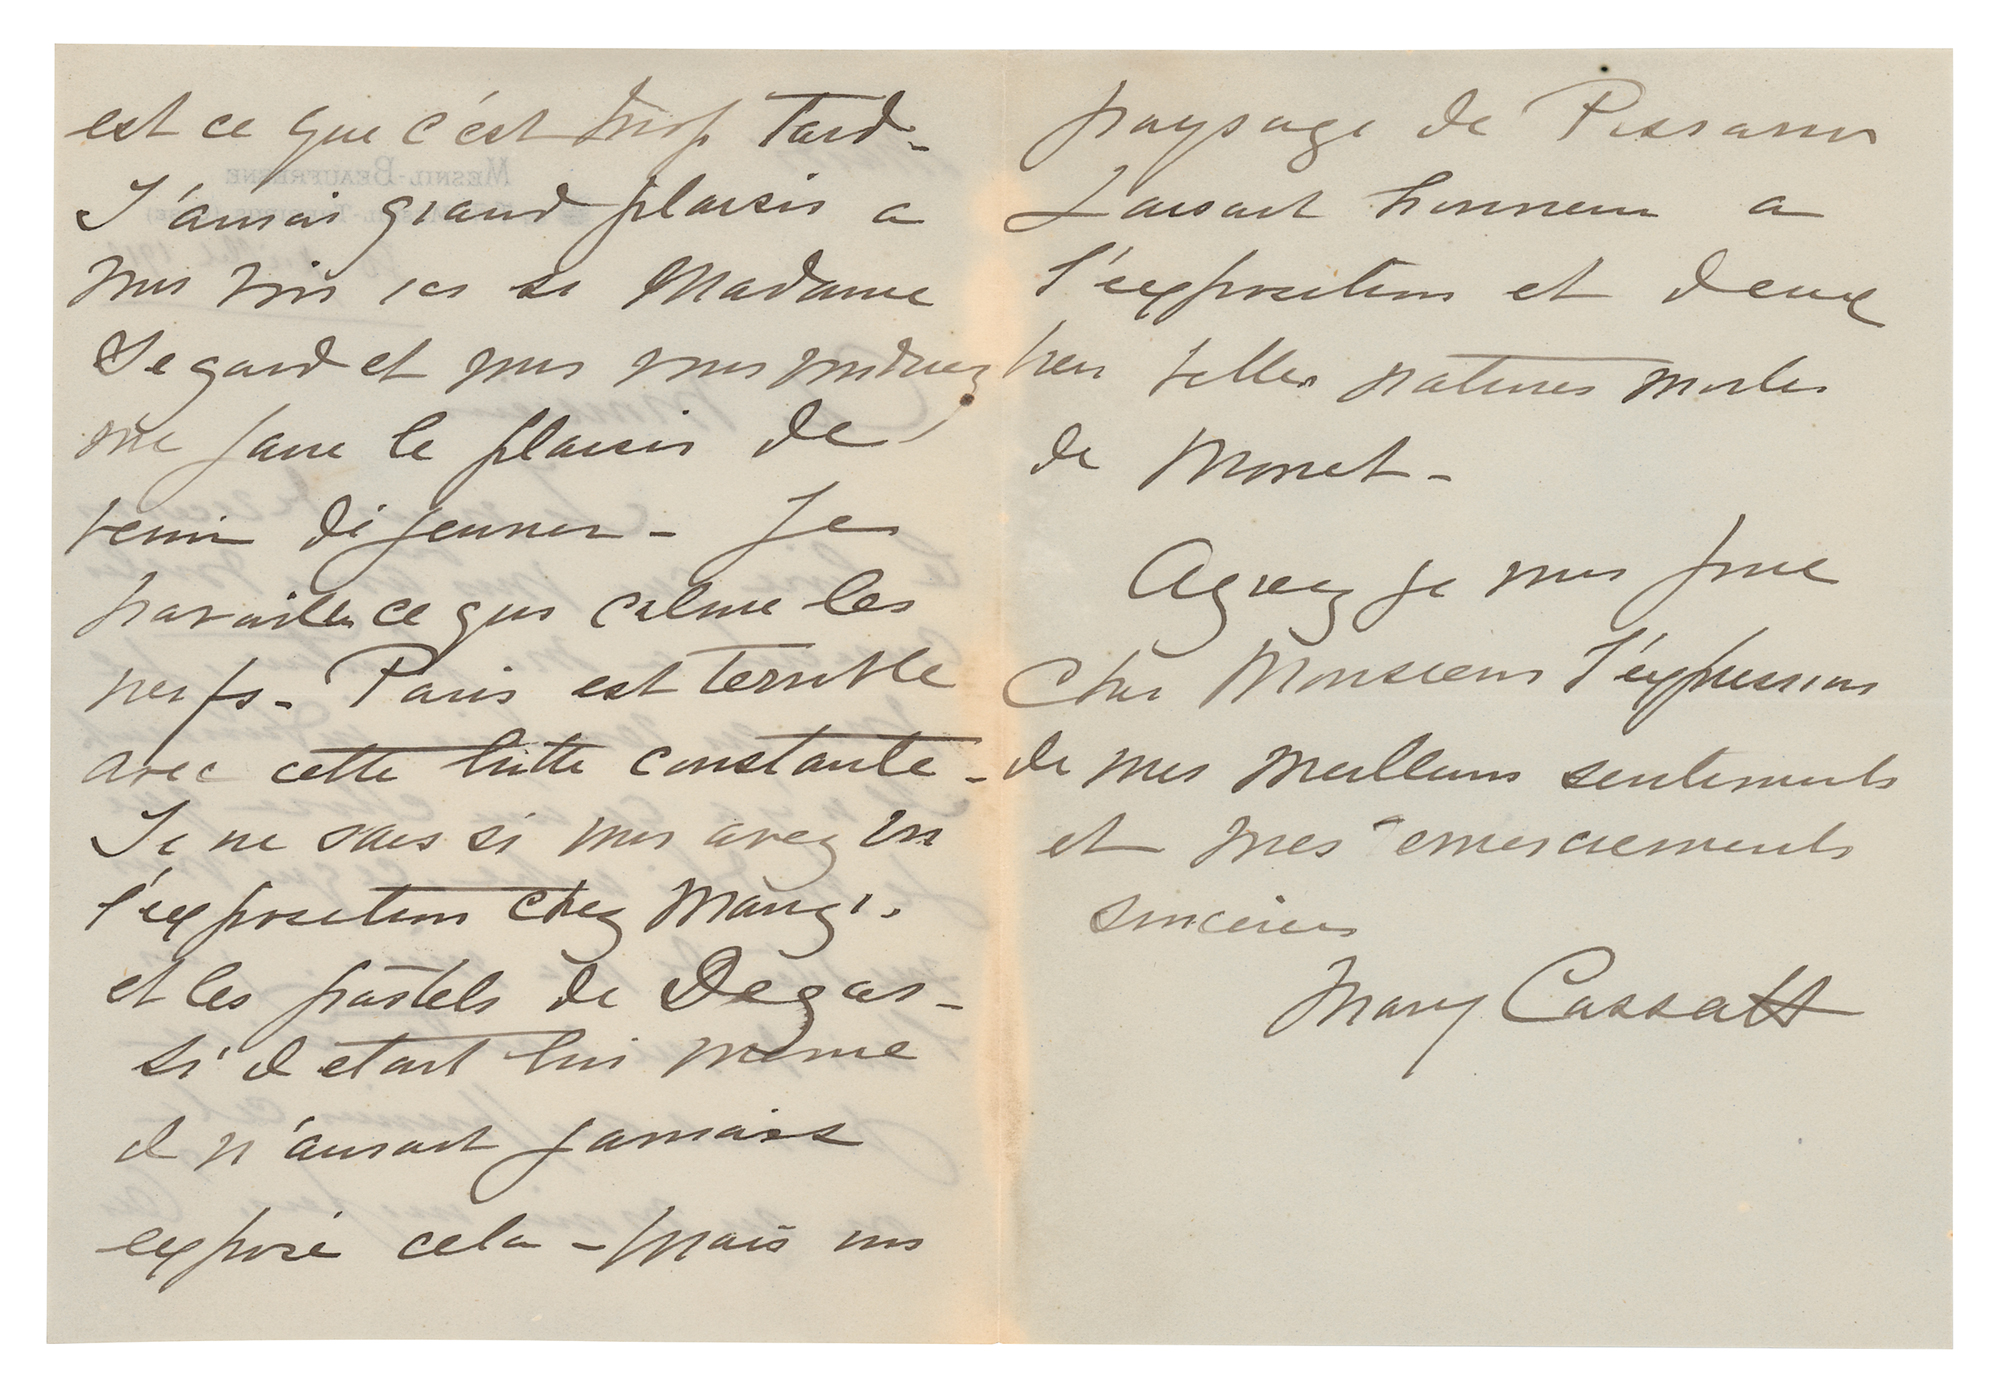 est ce que c'est trop tard -
J'aurai grand plaisir a
vous voir ici si Madame
Segard et vous vous voudriez
me faire le plaisir de
venir déjeuner - Je
travaille ce qui calme les
nerfs - Paris est terrible
avec cette lutte constante -
Je ne sais si vous avez vu
l'exposition chez Manzi.
et les pastels de Degas -
si il etait lui meme
il n'aurait jamais
exposé cela - Mais un
paysage de Pissarro
faisait honneur a
l'exposition et deux
tres belles natures mortes
de Monet -
Agreez je vous prie
Cher Monsieur l'expression
de mes meilleurs sentiments
et mes remerciements
sinceres
Mary Cassatt
MESNIL-BEAUFRESNE